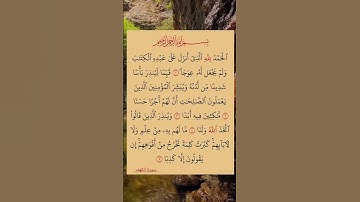 بسم الله الرحمن الرحيم
ٱلۡحَمۡدُ لِلَّهِ ٱلَّذِيٓ أَنزَلَ عَلَىٰ عَبۡدِهِ ٱلۡكِتَٰبَ
وَلَمۡ يَجۡعَل لَّهُۥ عِوَجَاۜ ١ قَيِّمٗا لِّيُنذِرَ بَأۡسٗا
شَدِيدٗا مِّن لَّدُنۡهُ وَيُبَشِّرَ ٱلۡمُؤۡمِنِينَ ٱلَّذِينَ
يَعۡمَلُونَ ٱلصَّٰلِحَٰتِ أَنَّ لَهُمۡ أَجۡرًا حَسَنٗا
٢ مَّٰكِثِينَ فِيهِ أَبَدٗا ٣ وَيُنذِرَ ٱلَّذِينَ قَالُواْ
ٱتَّخَذَ ٱللَّهُ وَلَدٗا ٤ مَّا لَهُم بِهِۦ مِنۡ عِلۡمٖ وَلَا
لِأٓبَآئِهِمۡۚ كَبُرَتۡ كَلِمَةٗ تَخۡرُجُ مِنۡ أَفۡوَٰهِهِمۡۚ إِن
يَقُولُونَ إِلَّا كَذِبٗا ٥
سورة الكهف